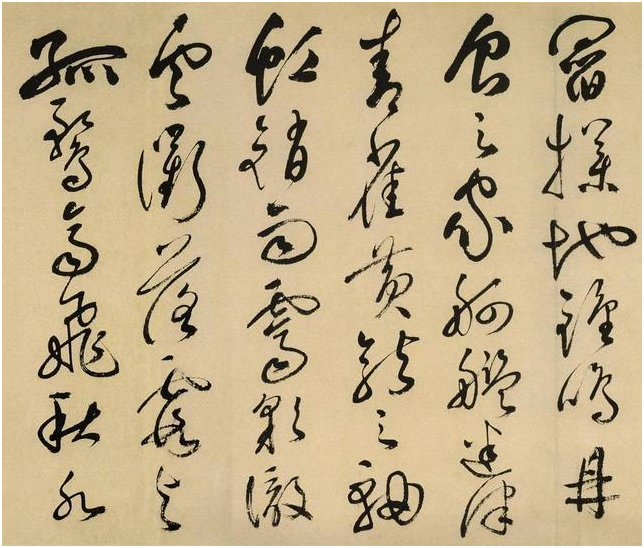 閻撲地鍾鳴鼎
食之家舸艦迷津
青雀黃龍之舳
虹銷雨霽彩徹
雲衢落霞與
孤鶩齊飛秋水